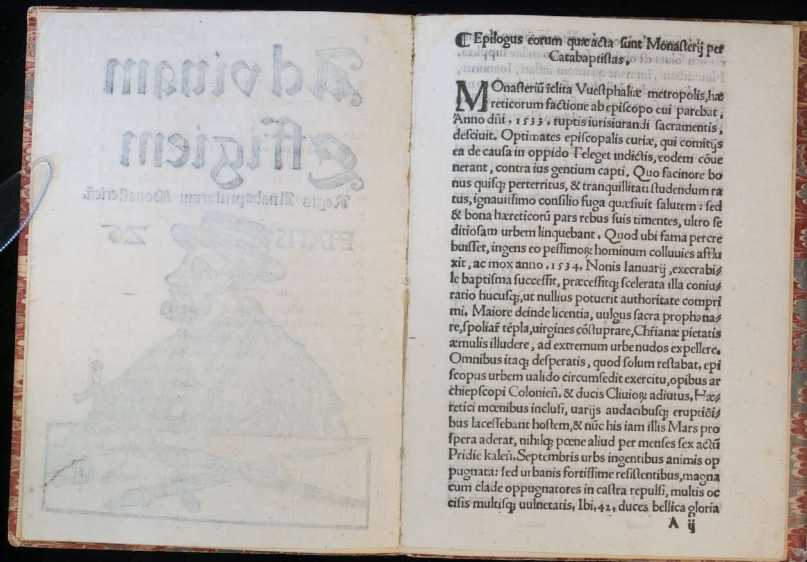 Ad vivam
Effigiem
Regis Anabaptistarum Monasterień.
ETATIS 26
Epilogus eorum quæ acta sunt Monasterij per
Catabaptistas.
MOnasteriū īclita Vuestphaliæ metropolis, hæ
reticorum factione ab episcopo cui parebat,
Anno dñi. 1533. ruptis iurisiurandi sacramentis,
desciuit. Optimates episcopalis curiæ, qui comitijs
ea de causa in oppido Teleget indictis, eodem cōue
nerant, contra ius gentium capti. Quo facinore bo
nus quisq; perterritus, & tranquillitati studendum ra
tus, ignauissimo consilio fuga quæsiuit salutem: sed
& bona hæreticorū pars rebus suis timentes, ultro se
ditiosam urbem linquebant. Quod ubi fama percre
buisset, ingens eo pessimoꝝ hominum colluuies afflu
xit, ac mox anno. 1534. Nonis Ianuarij, execrabi⸗
le baptisma successit, præcessitq; scelerata illa coniu⸗
ratio hucusq; ut nullius potuerit authoritate compri
mi. Maiore deinde licentia, uulgus sacra prophana⸗
re, spoliar tēpla, uirgines cōstuprare, Chr̄ianæ pietatis
æmulis illudere, ad extremum urbe nudos expellere.
Omnibus itaq; desperatis, quod solum restabat, epi
scopus urbem ualido circumsedit exercitu, opibus ar
chiepscopi Colonień. & ducis Cliuioꝝ adiutus. Hæ⸗
retici mœnibus inclusi, uarijs audacibusq; eruptiōi⸗
bus lacessebant hostem, & nūc his iam illis Mars pro
spera aderat, nihilq; pœne aliud per menses sex actū
Pridie kaleń. Septembris urbs ingentibus animis op
pugnata: sed urbanis fortissime resistentibus, magna
cum clade oppugnatores in castra repulsi, multis oc
cisis multisq; uulneratis. Ibi. 42. duces bellica gloria
A ij